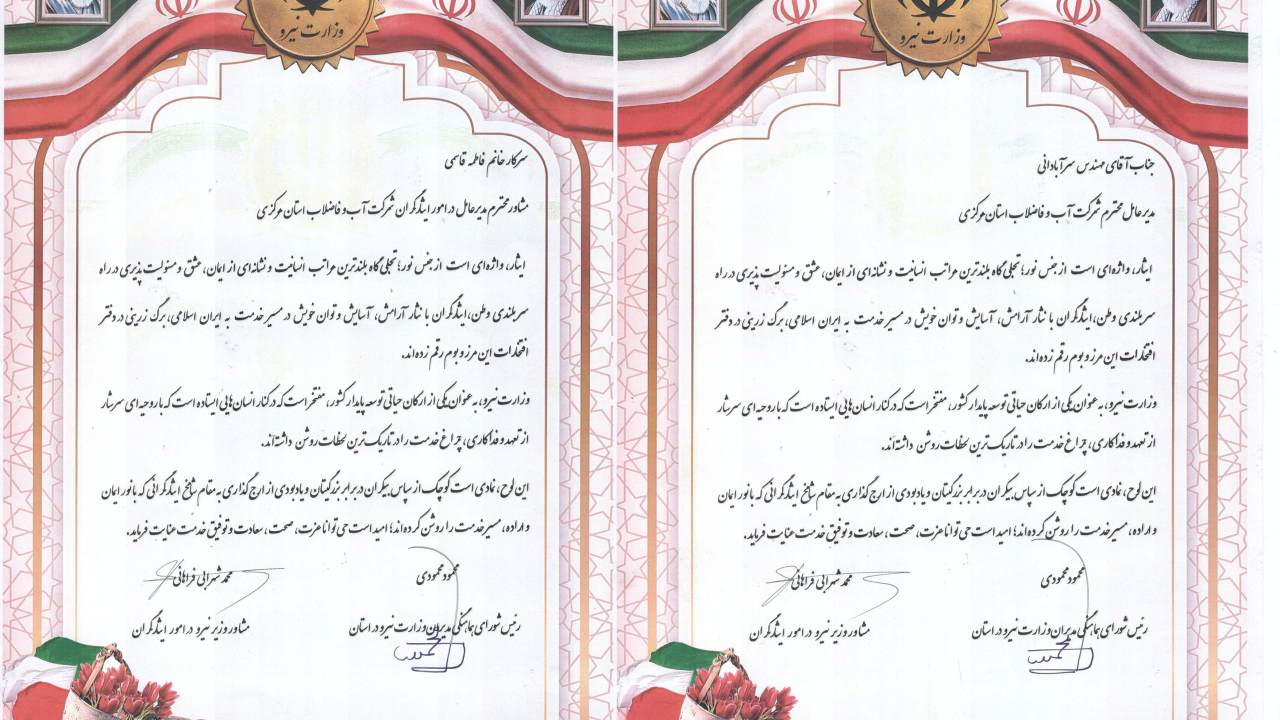 وزارت نیرو
سرکار خانم فاطمه قاسمی
مشاور محترم مدیرعامل در امور ایثارگران شرکت آب و فاضلاب استان مرکزی
ایثار، واژه‌ای است از جنس نور؛ تجلی‌گاه بلندترین مراتب انسانیت و نشانه‌ای از ایمان، عشق و مسئولیت پذیری در راه
سربلندی وطن، ایثارگران با نثار آرامش، آسایش و توان خویش در مسیر خدمت به ایران اسلامی، برگ زرینی در دفتر
افتخارات این مرز و بوم رقم زده‌اند.
وزارت نیرو، به عنوان یکی از ارکان حیاتی توسعه پایدار کشور، مفتخر است که در کنار انسان‌هایی ایستاده است که با روحیه‌ای سرشار
از تعهد و فداکاری، چراغ خدمت را در تاریک‌ترین لحظات روشن داشته‌اند.
این لوح، نمادی است کوچک از سپاس بیکران در برابر بزرگیتان و یادبودی از ارج گذاری به مقام شامخ ایثارگرانی که با نور ایمان
و اراده، مسیر خدمت را روشن کرده‌اند؛ امید است حی توانا عزت، صحت، سعادت و توفیق خدمت عنایت فرماید.
محمود محمودی
محمد شهرابی فراهانی
رئیس شورای هماهنگی مدیران وزارت نیرو در استان
مشاور وزیر نیرو در امور ایثارگران
وزارت نیرو
جناب آقای مهندس سرآبادانی
مدیرعامل محترم شرکت آب و فاضلاب استان مرکزی
ایثار، واژه‌ای است از جنس نور؛ تجلی‌گاه بلندترین مراتب انسانیت و نشانه‌ای از ایمان، عشق و مسئولیت پذیری در راه
سربلندی وطن، ایثارگران با نثار آرامش، آسایش و توان خویش در مسیر خدمت به ایران اسلامی، برگ زرینی در دفتر
افتخارات این مرز و بوم رقم زده‌اند.
وزارت نیرو، به عنوان یکی از ارکان حیاتی توسعه پایدار کشور، مفتخر است که در کنار انسان‌هایی ایستاده است که با روحیه‌ای سرشار
از تعهد و فداکاری، چراغ خدمت را در تاریک‌ترین لحظات روشن داشته‌اند.
این لوح، نمادی است کوچک از سپاس بیکران در برابر بزرگیتان و یادبودی از ارج گذاری به مقام شامخ ایثارگرانی که با نور ایمان
و اراده، مسیر خدمت را روشن کرده‌اند؛ امید است حی توانا عزت، صحت، سعادت و توفیق خدمت عنایت فرماید.
محمود محمودی
محمد شهرابی فراهانی
رئیس شورای هماهنگی مدیران وزارت نیرو در استان
مشاور وزیر نیرو در امور ایثارگران